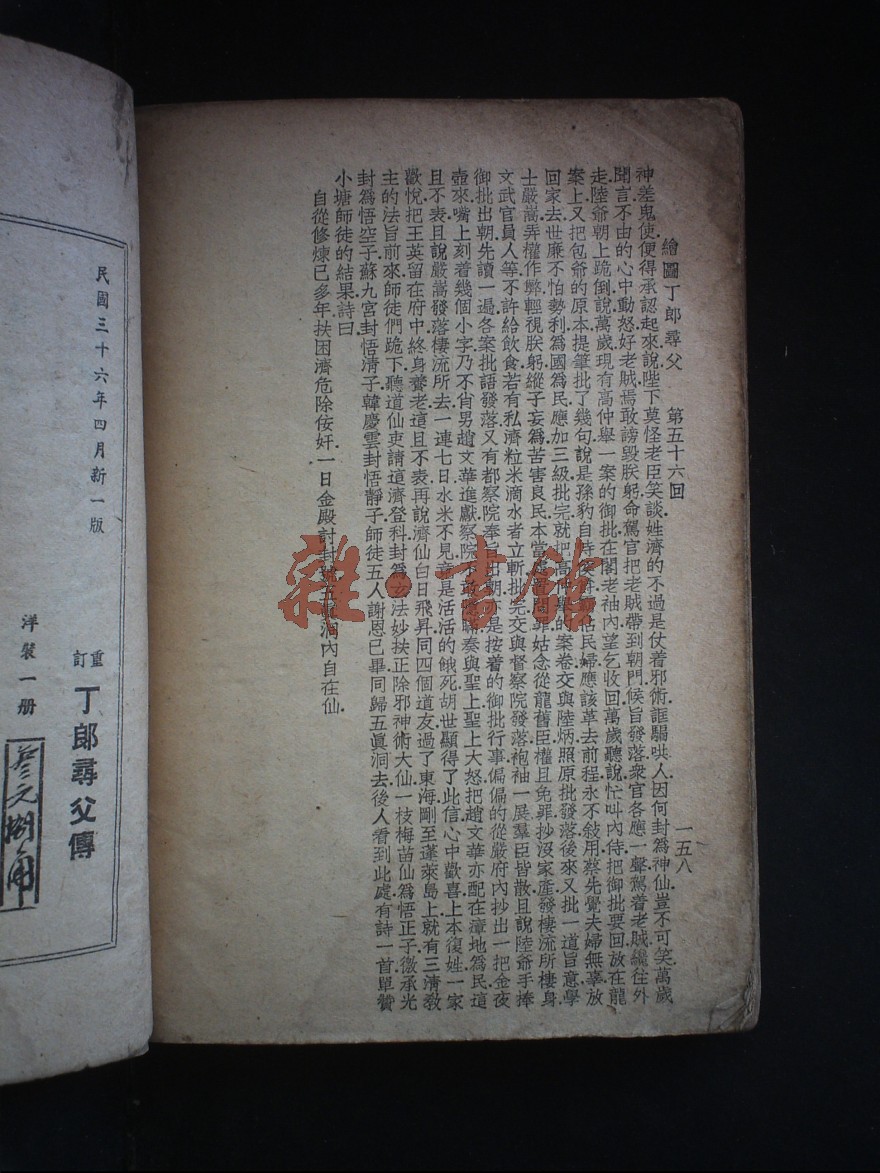 繪圖丁郎尋父　第五十六回　一五八
神差鬼使便得承認起來說陛下莫怪老臣笑談姓濟的不過是仗着邪術誆騙哄人因何封爲神仙豈不可笑萬歲
聞言不由的心中動怒好老賊焉敢謗毀朕躬命駕官把老賊帶到朝門候旨發落衆官各應一聲駕着老賊纔往外
走陸爺朝上跪倒說萬歲現有高仲舉一案的御批在閣老袖內望乞收回萬歲聽說忙叫內侍把御批要回放在龍
案上又把包爺的原本提筆批了幾句說是孫豹自恃 民婦應該革去前程永不敍用蔡先覺夫婦無辜放
回家去世廉不怕勢利爲國爲民應加三級批完就把高仲舉的案卷交與陸炳照原批發落後來又批一道旨意學
士嚴嵩弄權作弊輕視朕躬縱子妄爲苦害良民本當 罪姑念從龍舊臣權且免罪抄沒家產發棲流所棲身
文武官員人等不許給飲食若有私濟粒米滴水者立斬批完交與督察院發落袍袖一展羣臣皆散且說陸爺手捧
御批出朝先讀一遍各案批語發落又有都察院奉旨出朝亦是按着的御批行事偏偏的從嚴府內抄出一把金夜
壺來嘴上刻着幾個小字乃不肖男趙文華進獻察院不敢 聯奏與聖上聖上大怒把趙文華亦配在漳地爲民這
且不表且說嚴嵩發落棲流所去一連七日水米不見竟是活活的餓死胡世顯得了此信心中歡喜上本復姓一家
歡悅把王英留在府中終身養老這且不表再說濟仙白日飛昇同四個道友過了東海剛至蓬萊島上就有三清敎
主的法旨前來師徒們跪下聽道仙吏請道濟登科封爲玄法妙扶正除邪神術大仙一枝梅苗仙爲悟正子徵承光
封爲悟空子蘇九宮封悟清子韓慶雲封悟靜子師徒五人謝恩已畢同歸五眞洞去後人看到此處有詩一首單贊
小塘師徒的結果詩曰
自從修煉已多年扶困濟危除佞奸一日金殿討封號五眞洞內自在仙
民國三十六年四月新一版
重訂　丁郎尋父傳
洋裝一册
雜·書館